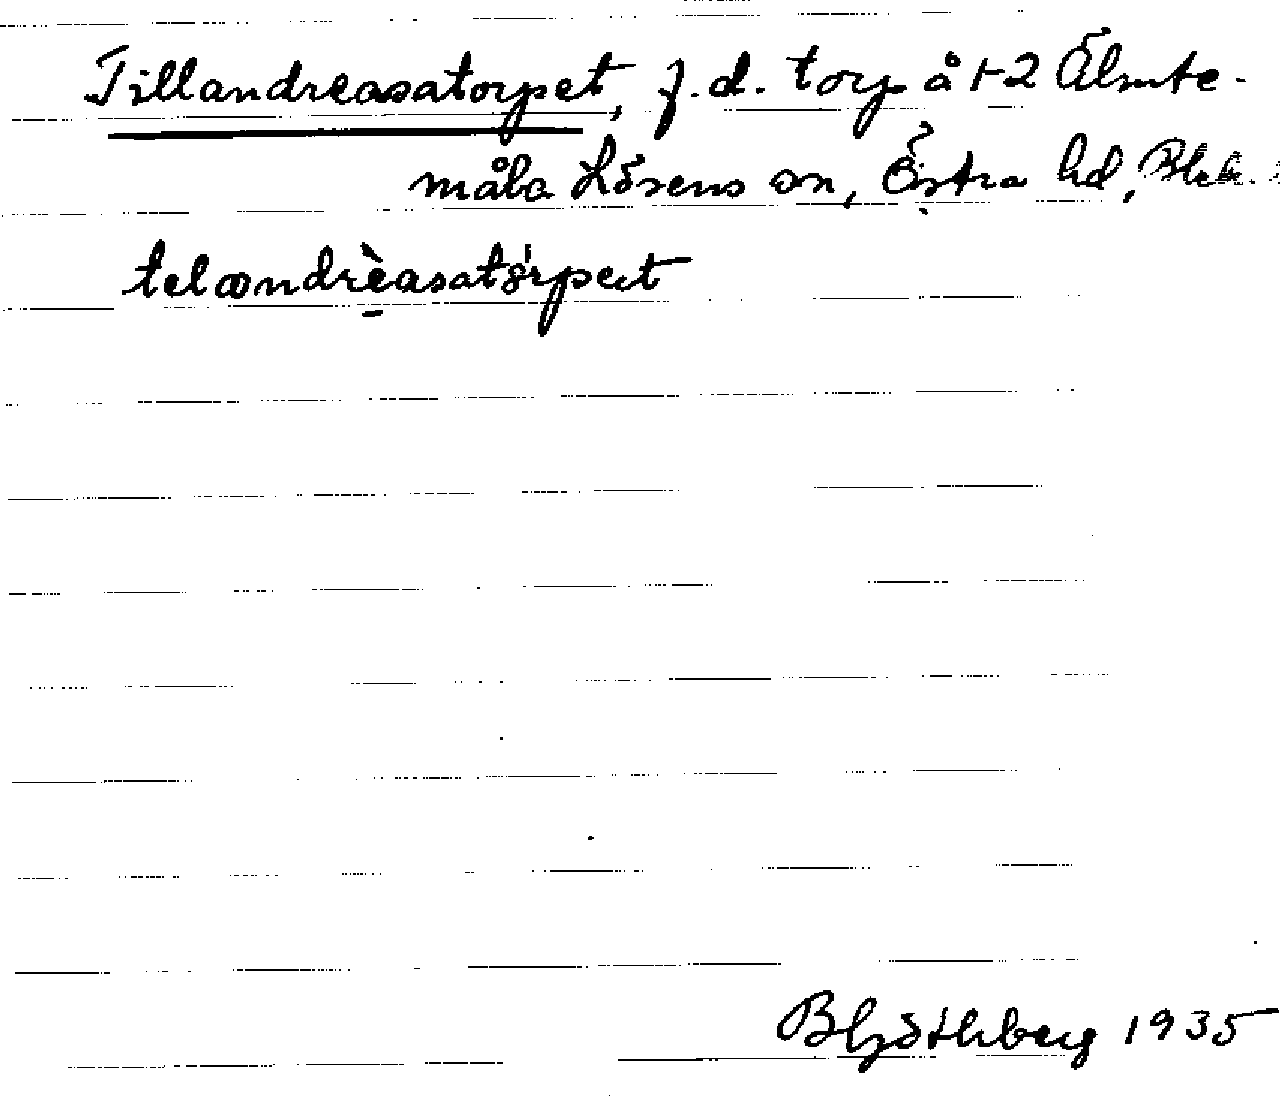 Tillandreasatorpet, f.d. torp å 1-2 Älmte-
måla Lösens sn, Östra hd, Blek.
telandrèasatórpeət
B Ljöthberg 1935